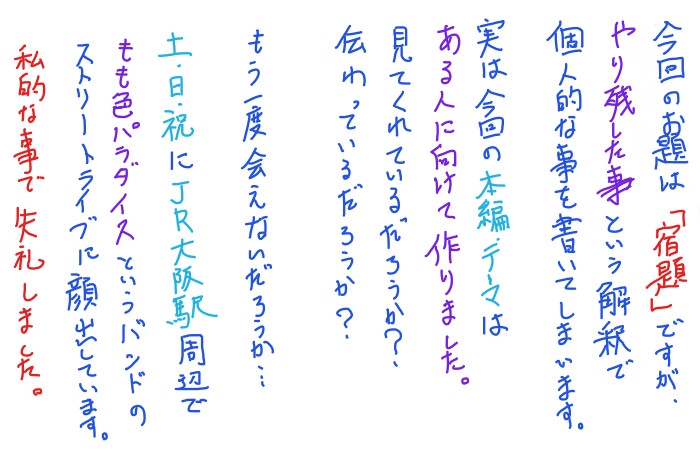 今回のお題は「宿題」ですが、
やり残した事という解釈で
個人的な事を書いてしまいます。
実は今回の本編・テーマは
ある人に向けて作りました。
見てくれているだろうか？
伝わっているだろうか？
もう一度会えないだろうか…
土・日・祝にJR大阪駅周辺で
もも色パラダイスというバンドの
ストリートライブに顔出しています。
私的な事で失礼しました。